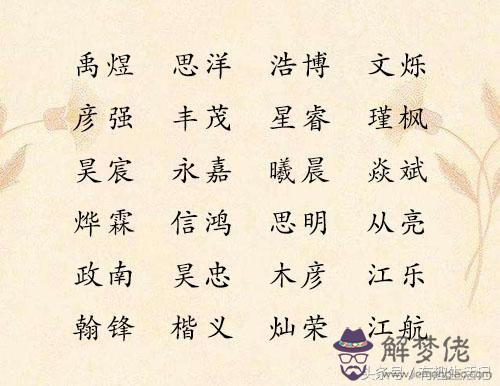 禹煜 思洋 浩博 文烁
彦强 丰茂 星睿 瑾枫
昊宸 永嘉 曦晨 焱斌
烨霖 信鸿 思明 从亮
政南 昊忠 木彦 江乐
翰锋 楷义 灿荣 江航
解梦佬
www.jiemenglao.com